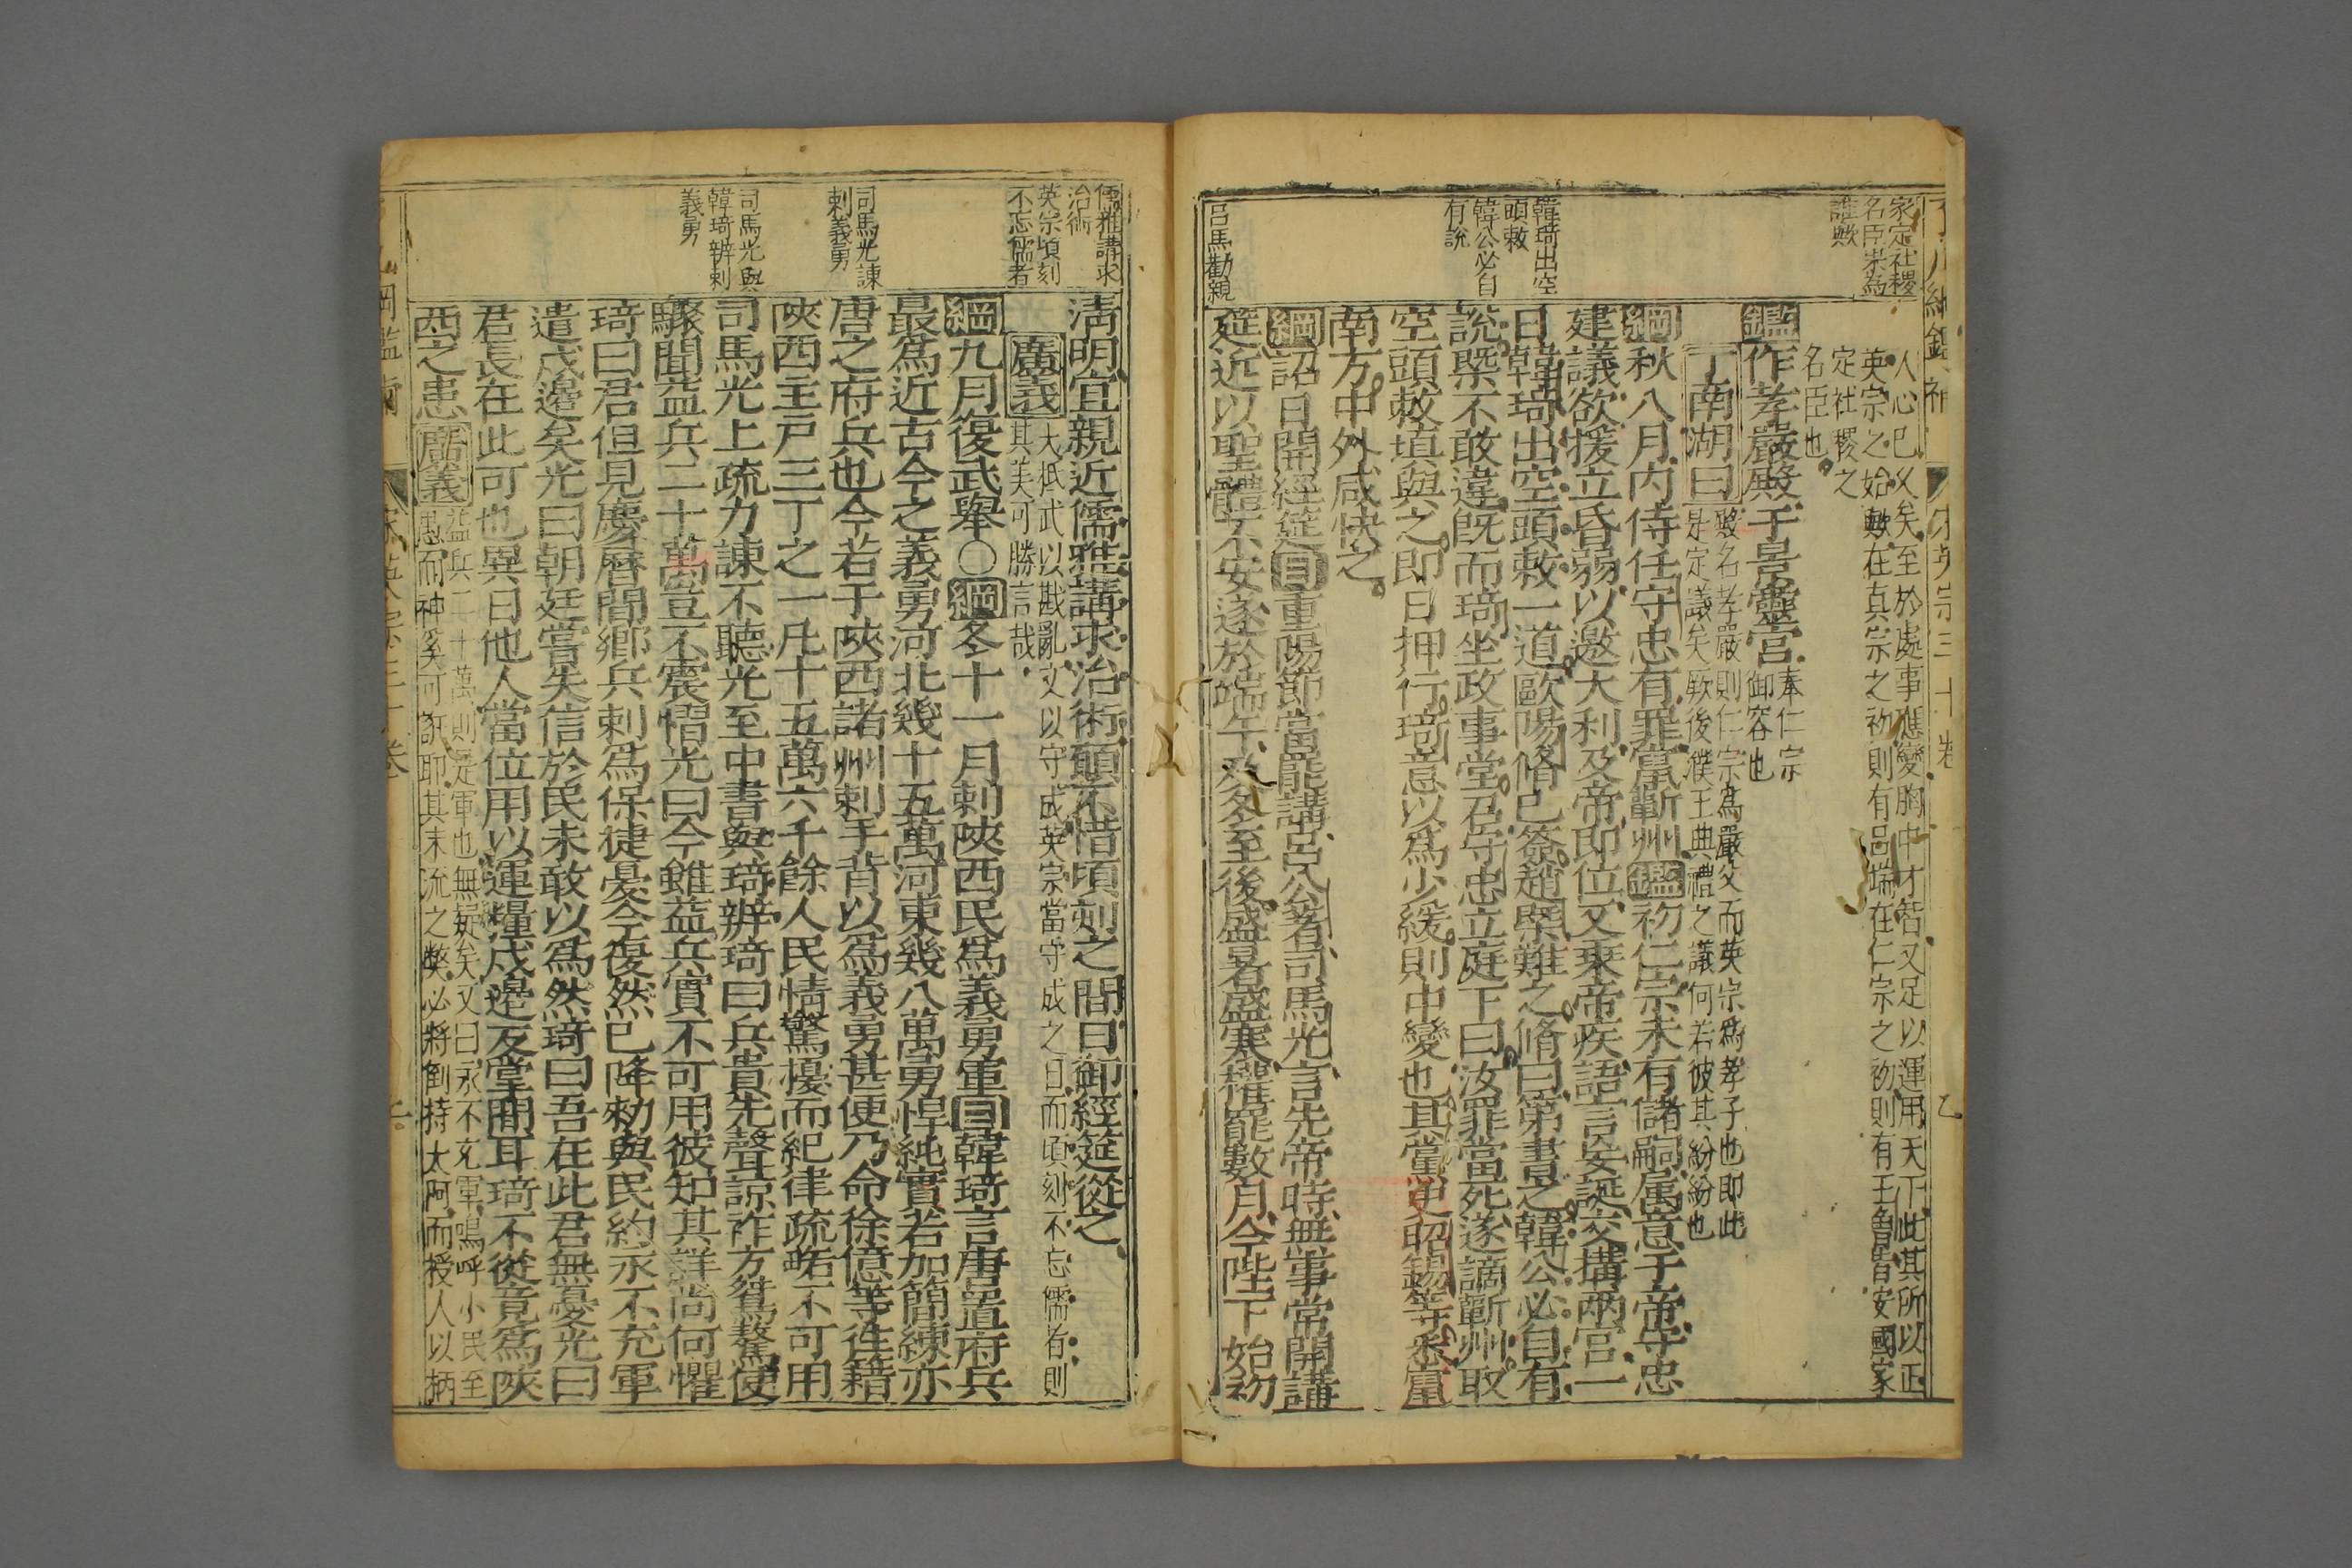 家定社稷
名臣崇為
誰歟
人心已久矣至於處事應變胸中才智又足以運用天下此其所以正
英宗之始歟在真宗之初則有呂端在仁宗之初則有王魯皆安國家
定社稷之
名臣也
鑑作孝嚴殿于景靈宮奉仁宗
御容也
丁南湖曰殿名孝嚴則仁宗為嚴父而英宗為孝子也即此
是定議矣厥後濮王典禮之議何若彼其紛紛也
綱秋八月內侍任守忠有罪竄蘄州鑑初仁宗未有儲嗣属意于帝守忠
建議欲援立昏弱以邀大利及帝即位又乘帝疾語言妄誕交搆兩宮一
韓琦出空
頭敕
日韓琦出空頭敕一道歐陽脩已簽趙槩難之脩曰第書之韓公必自有
韓公必自
有說
說槩不敢違既而琦坐政事堂召守忠立庭下曰汝罪當死遂謫蘄州取
空頭敕填與之即日押行琦意以為少緩則中變也其黨史昭錫等悉竄
南方中外咸快之
綱詔日開經筵目重陽節當罷講呂公著司馬光言先帝時無事常開講
呂馬勸親
筵近以聖體不安遂於端午及冬至後盛暑盛寒權罷數月今陛下始初
儒雅講求
治術
清明宜親近儒雅講求治術願不惜頃刻之間日御經筵從之
英宗頃刻
不忘儒者
廣義大抵武以戡亂文以守成英宗當守成之日而頃刻不忘儒者則
其美可勝言哉
綱九月復武舉○綱冬十一月刺陝西民為義勇軍目韓琦言唐置府兵
最為近古今之義勇河北幾十五萬河東幾八萬勇悍純實若加簡練亦
司馬光諫
刺義勇
唐之府兵也今若于陝西諸州刺手背以為義勇甚便乃命徐億等徃籍
陝西主戸三丁之一凡十五萬六千餘人民情驚擾而紀律疏畧不可用
司馬光與
韓琦辨刺
義勇
司馬光上疏力諫不聽光至中書與琦辨琦曰兵貴先聲諒祚方桀驁使
驟聞益兵二十萬豈不震慴光曰今雖益兵實不可用彼知其詳尚何懼
琦曰君但見慶曆間鄉兵刺為保㨗憂今復然已降勑與民約永不充軍
遣戍邊矣光曰朝廷嘗失信於民未敢以為然琦曰吾在此君無憂光曰
君長在此可也異日他人當位用以運糧戍邊反掌間耳琦不從竟為陝
西之患廣義益兵二十萬則是軍也無疑矣又曰永不充軍嗚呼小民至
愚而神奚可誑耶其末流之獘必將倒持太阿而授人以柄